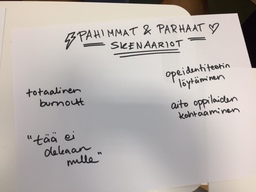 PAHIMMAT & PARHAAT
SKENAARIOT
totaalinen
burnout
"tää ei
olekaan
mulle"
opeidentiteetin
löytäminen
aito oppilaiden
kohtaaminen